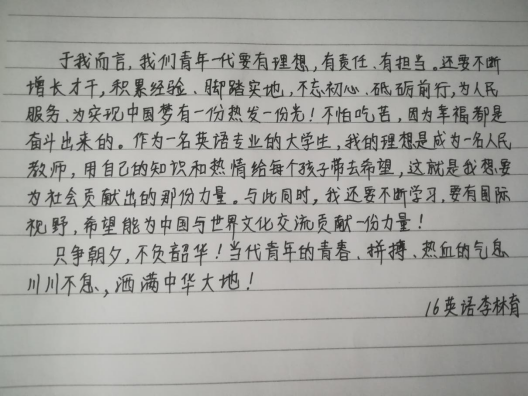 于我而言,我们青年一代要有理想,有责任、有担当。还要不断
增长才干,积累经验、脚踏实地,不忘初心、砥砺前行,为人民
服务、为实现中国梦有一份热发一份光!不怕吃苦,因为幸福都是
奋斗出来的。作为一名英语专业的大学生,我的理想是成为一名人民
教师,用自己的知识和热情给每个孩子带去希望,这就是我想要
为社会贡献出的那份力量。与此同时,我还要不断学习,要有国际
视野,希望能为中国与世界文化交流贡献一份力量!
只争朝夕,不负韶华!当代青年的青春、拼搏、热血的气息
川川不息,洒满中华大地!
16英语李林育